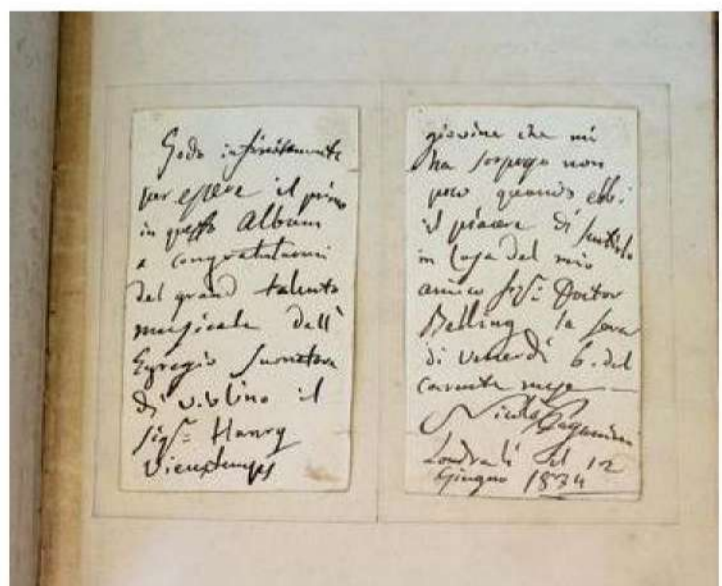 Godo infinitamente
per essere il primo
in questo Album
a congratularmi
del grand talento
musicale dell'
Egregio Suonatore
di violino il
Sigr: Henry
Vieuxtemps
giovine che mi
ha sorpreso non
poco quando ebbi
il piacere di sentirlo
in Casa del mio
amico Sigr: Doctor
Belling la sera
di Venerdì 6. del
corrente mese
Nicolò Paganini
Londra li 12
Giugno 1834